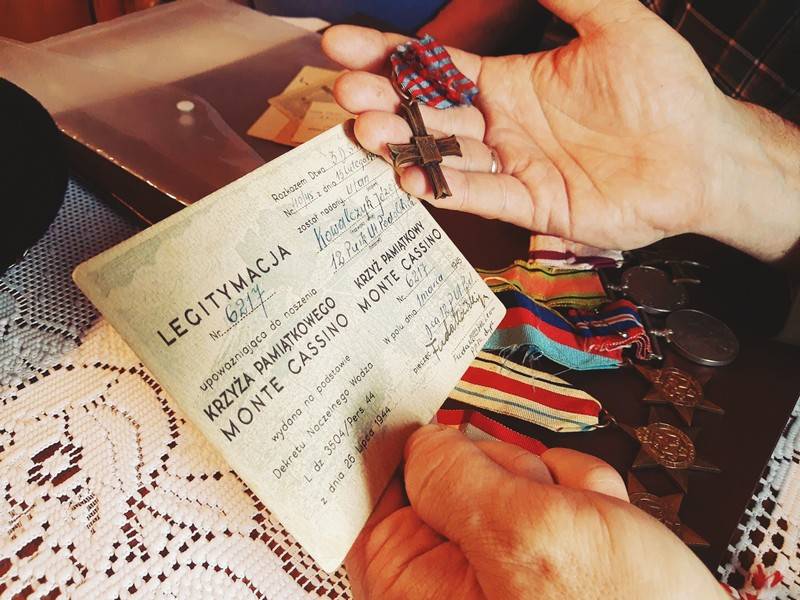 LEGITYMACJA
Nr. 6217
upoważniająca do noszenia
KRZYŻA PAMIĄTKOWEGO
MONTE CASSINO
wydana na podstawie
Dekretu Naczelnego Wodza
L dz 3504/Pers. 44
z dnia 26 Lipca 1944
Rozkazem Dtwa
Nr. z dnia 15 lutego
został nadany ułan
Kowalczyk
12 Pułk Uł. Podolskich
KRZYŻ PAMIĄTKOWY
MONTE CASSINO
Nr. 6217
W polu dnia 1 marca 1945